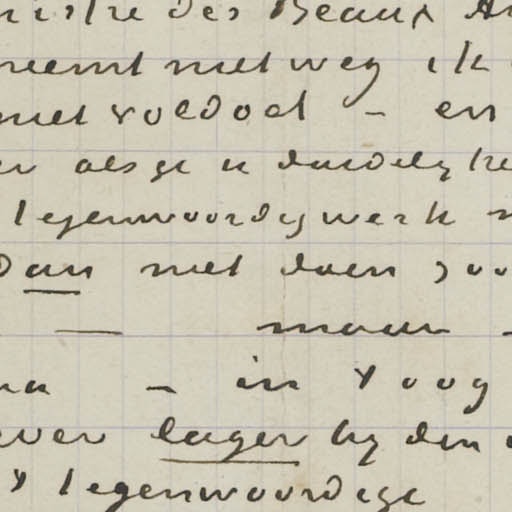 nistre des Beaux Ar
neemt niet weg ik
niet voldoet – en
er als ge u duidelyke
tegenwoordig werk
dan niet doen zoo
— maar –
na – in t oog
ever lager by den
't tegenwoordige